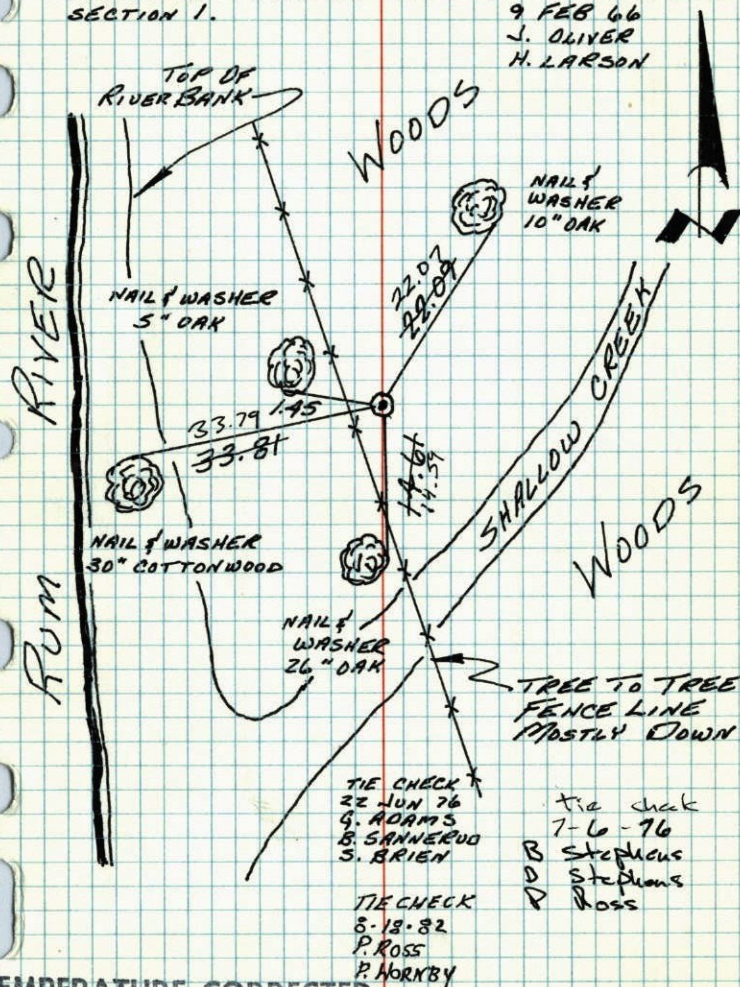 SECTION 1.
9 FEB 66
J. OLIVER
H. LARSON
TOP OF
RIVER BANK
WOODS
NAIL &
WASHER
10" OAK
22.07
22.09
NAIL & WASHER
5" OAK
RUM RIVER
1.45
33.79
33.81
14.61
14.59
SHALLOW CREEK
WOODS
NAIL & WASHER
30" COTTONWOOD
NAIL &
WASHER
26" OAK
TREE TO TREE
FENCE LINE
MOSTLY DOWN
TIE CHECK
22 JUN 76
G. ADAMS
B. SANNERUD
S. BRIEN
tie check
7-6-76
B Stephens
D Stephens
P Ross
TIE CHECK
8-18-82
P. ROSS
P. HORNBY
TEMPERATURE CORRECTED